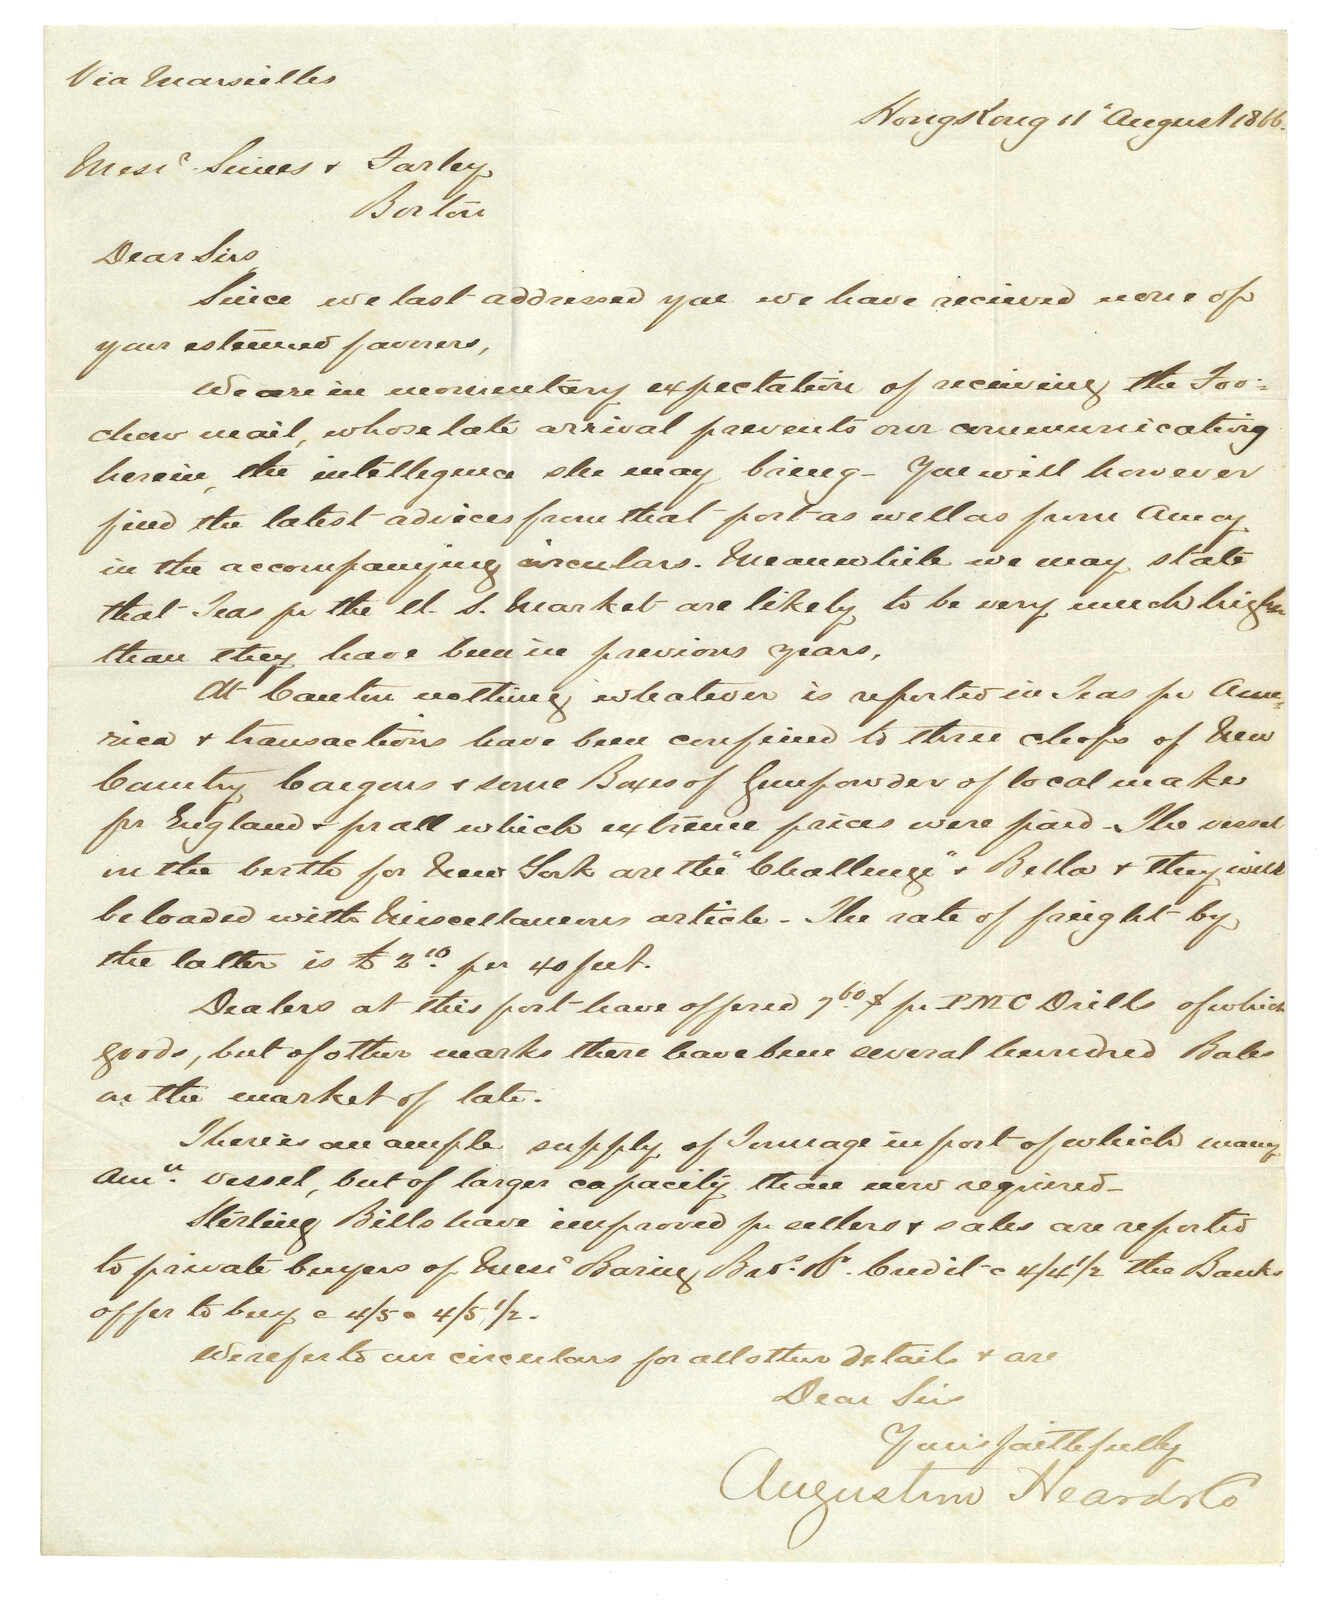 Via Marsielles
HongKong 11" August 1866.
Messrs. Simes & Farley
Boston
Dear Sirs
Since we last addressed you we have recieved none of
your esteemed favours,
We are in momentary expectation of receiving the Foo=
chow mail, whose late arrival prevents our communicating
herein, the intelligence she may bring - You will however
find the latest advices from that port as well as from Amoy
in the accompanying circulars. Meanwhile we may state
that Teas for the U. S. Market are likely to be very much higher
than they have been in previous years,
At Canton nothing whatever is reported in Teas for Ame=
rica & transactions have been confined to three chops of New
Country Congous & some Boxes of Gunpowder of local make
for England & for all which extreme prices were paid - The vessel
on the berth for New York are the "Challenge" & Bella & they will
be loaded with Miscellaneous article - The rate of freight by
the latter is £ 2.10 per 40 feet.
Dealers at this port have offered 7.60 $ for P.M.C Drills of which
goods, but of other marks there have been several hundred Bales
on the market of late.
There is an ample supply of Tonnage in port of which many
Amn. vessel, but of larger capacity than now required -
Sterling Bills have improved for sellers & sales are reported
to private buyers of Messrs Baring Bros. Credit @ 4/4 1/2 the Banks
offer to buy @ 4/5 @ 4/5 1/2.
We refer to our circulars for all other details & are
Dear Sirs
Yours faithfully
Augustine Heard & Co